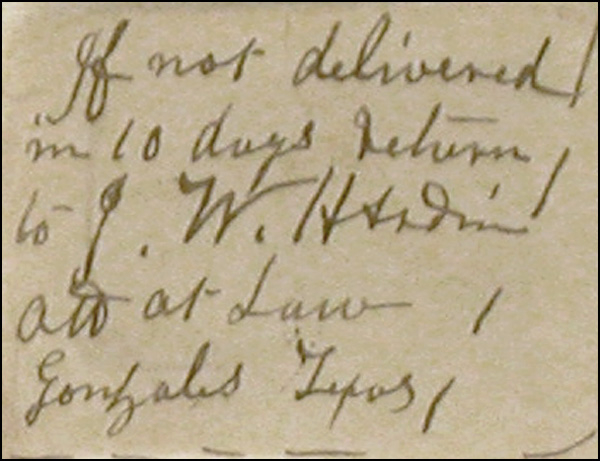 If not delivered
in 10 days return
to J. W. Hardin
att at Law
Gonzales Texas